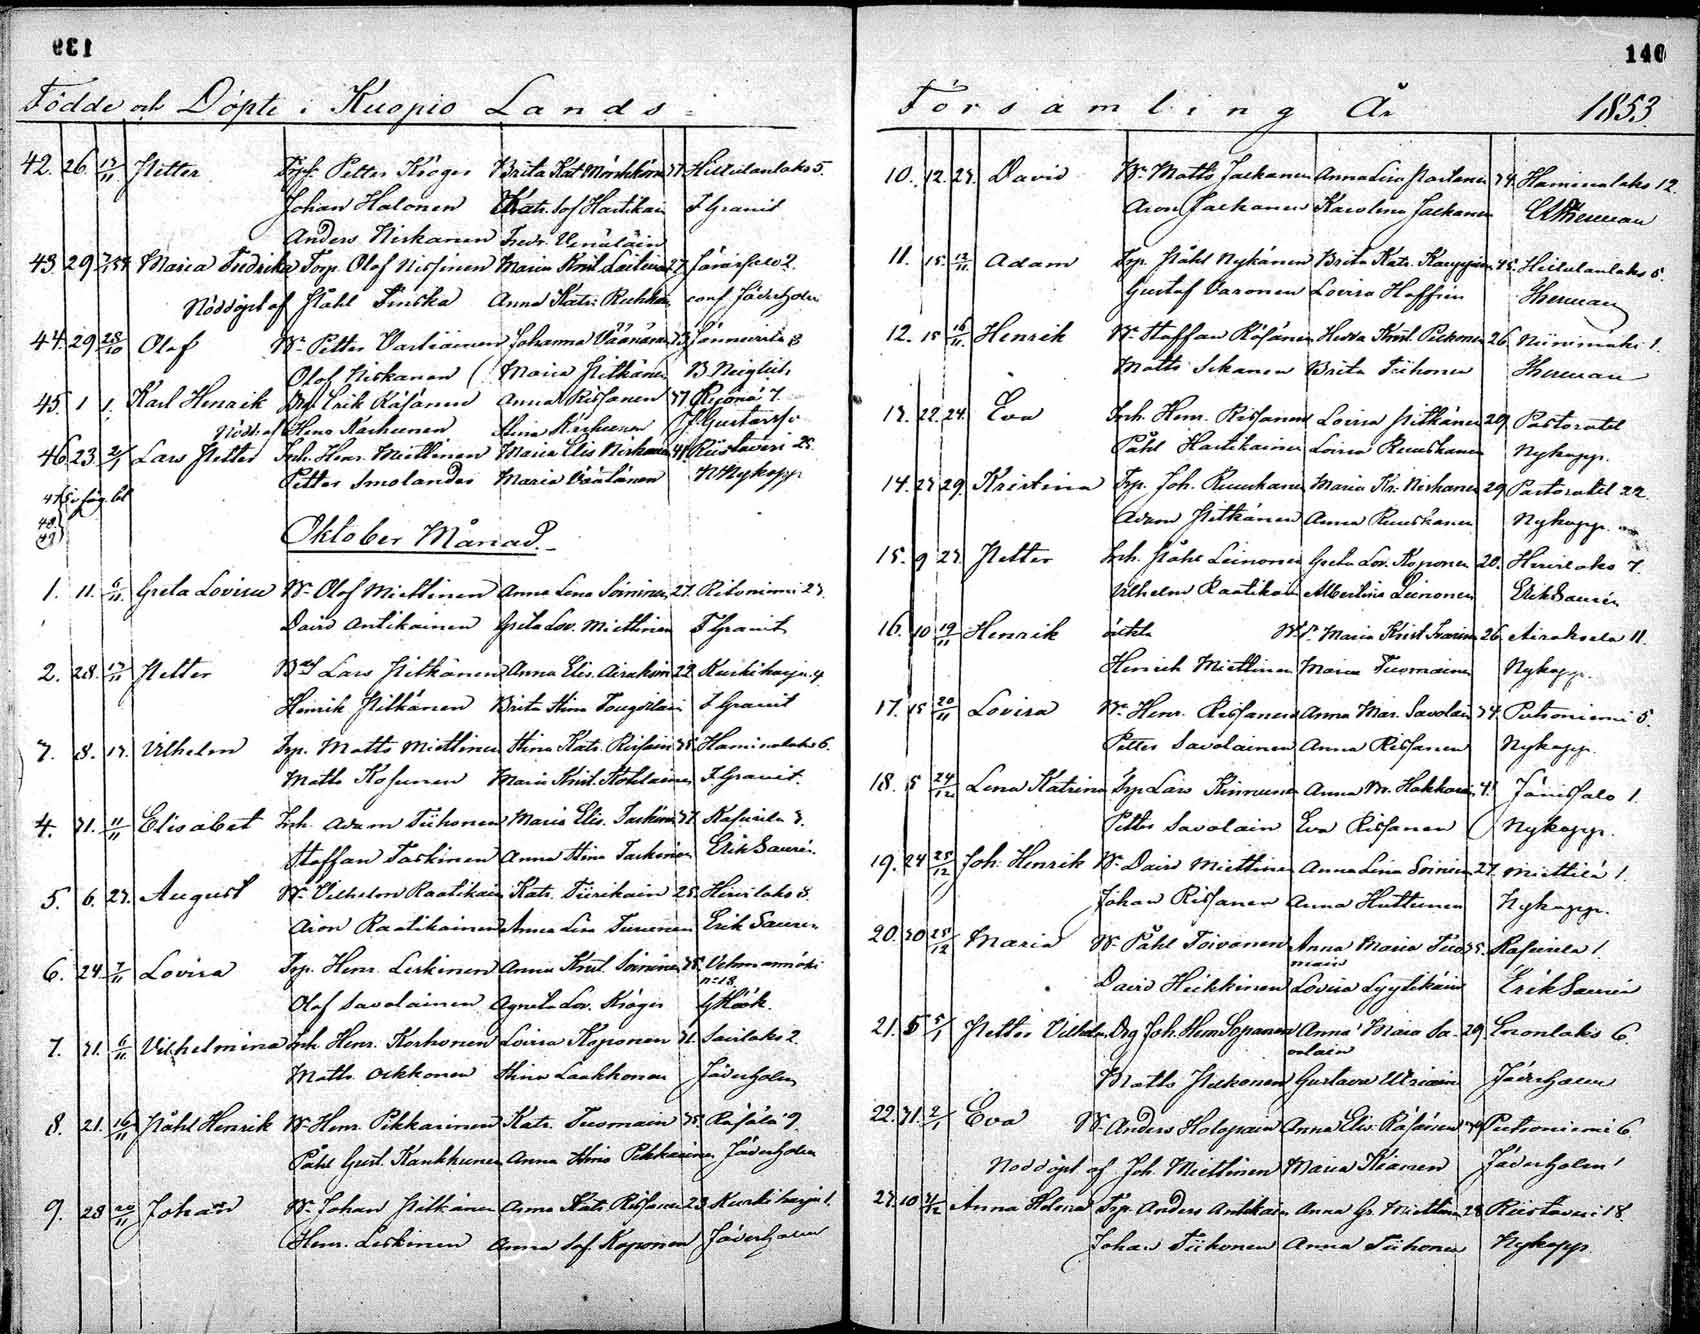 139
Födde och Döpte i Kuopio Lands=
42. 26. 13/11 Petter Petter Kröger Brita Kat. 37 5.
Johan Halonen Katr. Sof Hartikain F Granit
Anders Niskanen Fredr. Venäläin
43. 29 Maria Fredrika Torp. Olof Nissinen Maria Krist. 27 2.
Nöddöpt af Påhl Anna Katr. conf Jäderholm
44. 29 28/10 Olof Petter Vartiainen Johanna Väänänen 33 Jännevirta 3
Olof Niskanen Maria Pitkänen B.
45. 1 1. Karl Henrik Erik Räsänen Anna Rissanen 37 7.
Nödd. af Stina Karhunen Stina
46. 23. 2/1 Lars Petter Inh. Henr. Miettinen Maria Elis Niskanen 41. Riistavesi 25.
Petter Smolander Maria Väätänen Nykopp
47.
48.
49.
Oktober Månad.
1. 11. 6/11 Greta Lovisa Olof Miettinen Anna Lena Soininen 27. Ritoniemi 23.
David Antikainen Greta Lov. Miettinen F Granit
2. 28. 13/11 Petter Lars Pitkänen Anna Elis. Airaksin 22 Kurkiharju 4.
Henrik Pitkänen Brita Stina F Granit
3. 8. 13. Vilhelm Trp. Matts Miettinen Stina Katr. 35. Haminalaks 6.
Matts Kosunen Maria Krist. F. Granit.
4. 31. 11/11 Elisabet Inh. Adam Tiihonen Maria Elis. Taskinen 37. Kasurila 3.
Staffan Taskinen Anna Stina Taskinen Erik Saurén.
5. 6. 27. August Vilhelm Raatikain Katr. Tiirikain 25. Hirvilaks 8.
Aron Raatikainen Anna Lisa Turunen Erik Saurén
6. 24. 7/11 Lovisa Trp. Henr. Leskinen Anna Krist. Soininen 35. Vehmasmäki
n:o 18.
Olof Savolainen Agneta Lov. Kröger G Höök.
7. 31. 6/11 Vilhelmina Inh. Henr. Korhonen Lovisa Koponen 31. Savilaks 2.
Matts Ockkonen Stina Laakkonen Jäderholm
8. 21. 16/11 Påhl Henrik Henr. Pikkarinen Katr. Tuomain 35. Räsälä 9.
Påhl Gust. Kankkunen Anna Stina Pikkarinen Jäderholm
9. 28 20/11 Johan Johan Pitkänen Anna Katr. Rissanen 23 Kurkiharju 1.
Henr. Leskinen Anna Sof. Koponen Jäderholm
140
Församling År 1853
10. 12. 27. David Matts Jaekanen Anna Lisa Partanen 34. Haminalaks 12.
Aron Jaekanen Karolina Jaekanen
11. 15. 13/11. Adam Trp. Påhl Nykänen Brita Katr. Kauppin 45. 5.
Gustaf Varonen Lovisa Hoffrén
12. 15 16/11 Henrik Staffan Räsänen Hedda Krist. Pekonen 26. Niinimäki 1.
Matts Ikanen Brita Tiihonen
13. 22. 24. Eva Inh. Henr. Rissanen Lovisa Pitkänen 29. Pastoratet
Påhl Hartikainen Lovisa Ruuskanen Nykopp.
14. 27 29. Kristina Trp. Joh. Ruuskanen Maria Kr. Niskanen 29. Pastoratet 22.
Adam Pitkänen Anna Ruuskanen Nykopp.
15. 9 27. Petter Inh. Påhl Leinonen Greta Lov. Koponen 20. Hirvilaks 7.
Vilhelm Raatikain Albertina Leinonen Erik Saurén
16. 10 19/11 Henrik oäkta Maria Krist 26. Airaksela 11.
Henrik Miettinen Maria Tuomainen Nykopp.
17. 15 20/11 Lovisa Henr. Rissanen Anna Mar. Savolain 34. Putroniemi 5.
Petter Savolainen Anna Rissanen Nykopp.
18. 5 24/12 Lena Katrina Trp Lars Kinnunen Anna M. Hakkarain 41. Jänissalo 1.
Petter Savolain Eva Rissanen Nykopp.
19. 24 25/12 Joh. Henrik David Miettinen Anna Lena Soininen 27. Miettilä 1.
Johan Rissanen Anna Huttunen Nykopp.
20. 30 25/12 Maria Påhl Toivanen Anna Maria Tuo- 35. Kasurila 1.
main
David Heikkinen Lovisa Lyytikäin Erik Saurén
21. 5 5/1 Petter Vilhelm Drg Joh. Henr Sopanen Anna Maria Sa- 29 Enonlaks 6.
volain
Matts Pekonen Gustava Utriain Jäderholm
22. 31. 2/1 Eva Anders Holopain Anna Elis. Räsänen Putroniemi 6.
Nöddöpt af Joh. Miettinen Maria Jäderholm
23. 10 Anna Helena Trp. Anders Antikain Anna Gr. Miettinen 28. Riistavesi 18.
Johan Tiihonen Anna Tiihonen Nykopp.